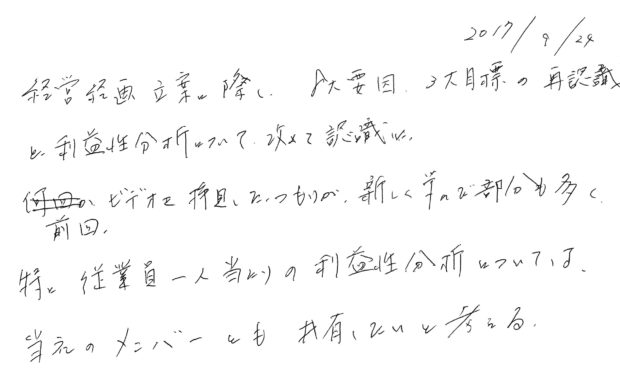 2017/9/24
経営経画立案に際し、8大要因、3大目標の再認識
と利益性分析について、改めて認識した。
前回、ビデオを拝見したつもりが、新しく学んだ部分も多く、
特に従業員一人当たりの利益性分析については、
当社のメンバーとも共有したいと考える。